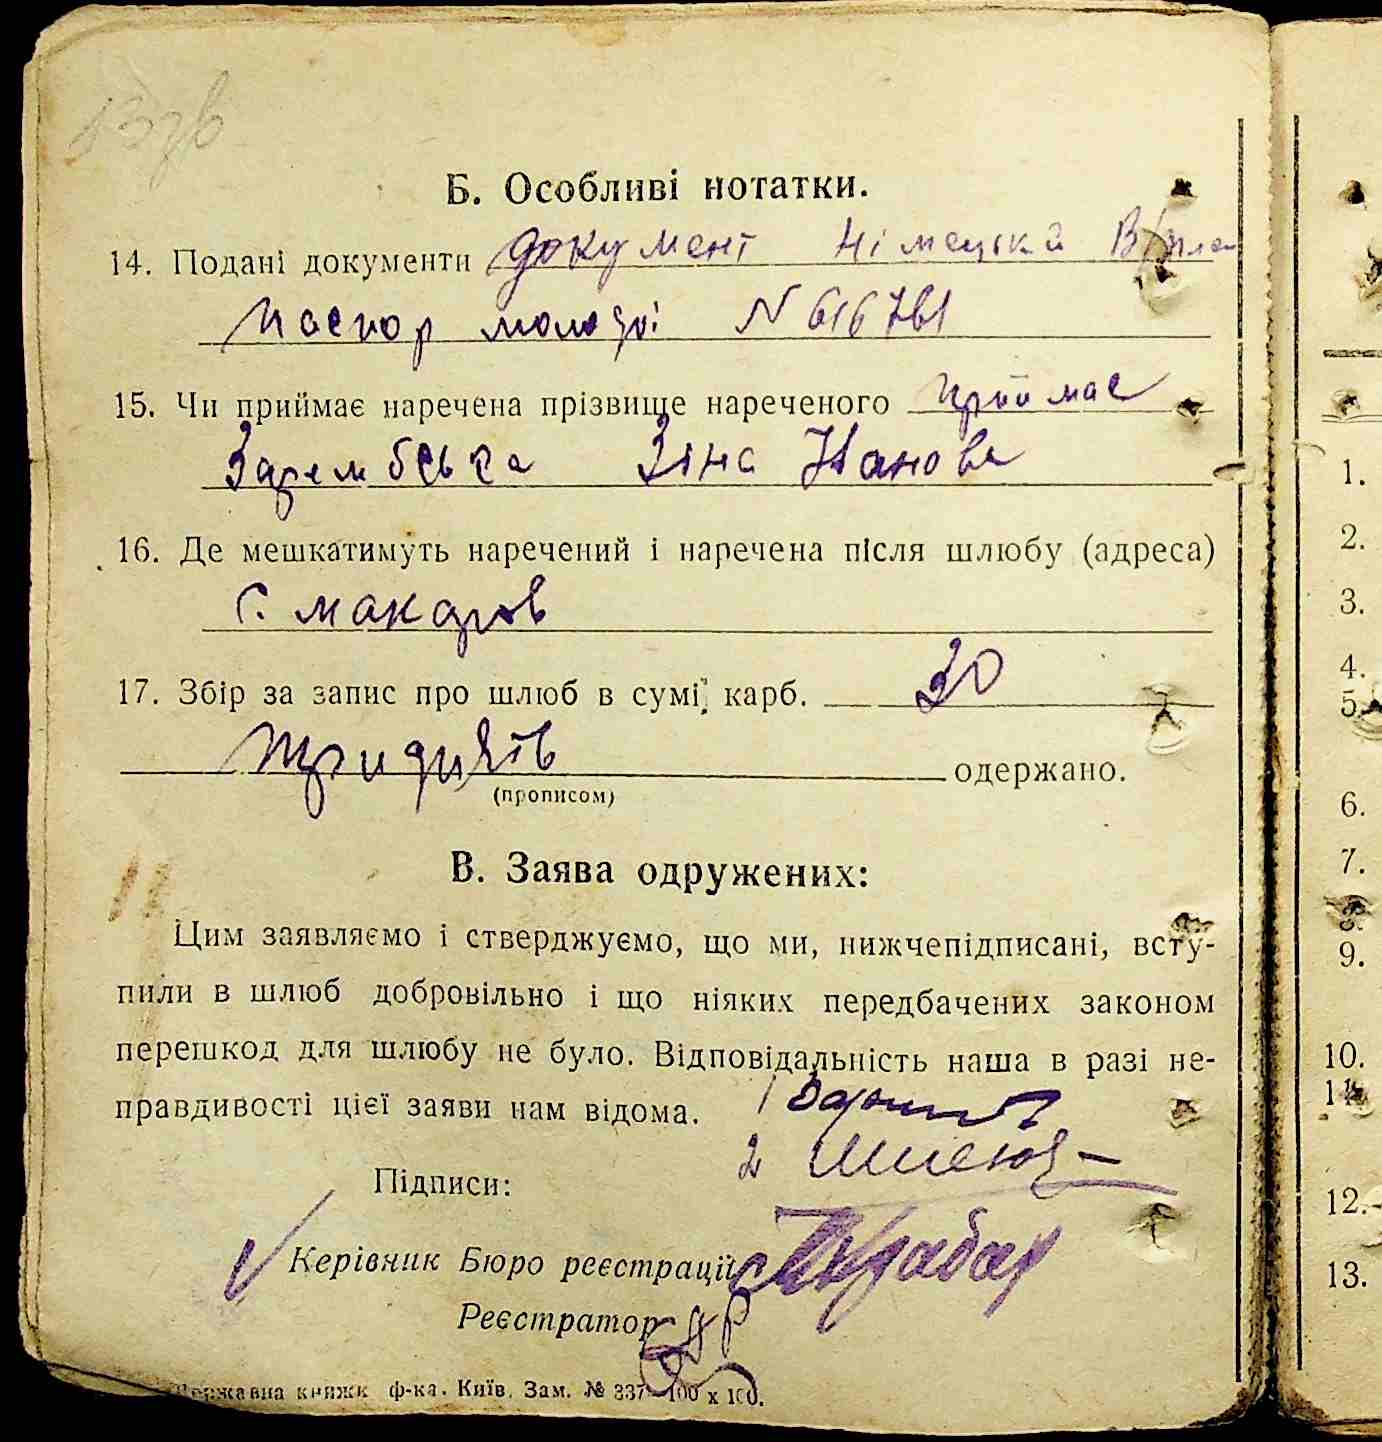 Б. Особливі нотатки.
14. Подані документи документ німецька
паспор молодоі N 616761
15. Чи приймає наречена прізвище нареченого приймає
Зарембська Зіна Іванова
16. Де мешкатимуть наречений і наречена після шлюбу (адреса)
с. макарів
17. Збір за запис про шлюб в сумі, карб. 30
тридцять одержано.
(прописом)
В. Заява одружених:
Цим заявляємо і стверджуємо, що ми, нижчепідписані, всту-
пили в шлюб добровільно і що ніяких передбачених законом
перешкод для шлюбу не було. Відповідальність наша в разі не-
правдивості цієї заяви нам відома. 1
2
Підписи:
Керівник Бюро реєстрації
Реєстратор
Державна книжк ф-ка. Київ. Зам. № 337—100 х 100.
1.
2.
3.
4.
5.
6.
7.
8.
9.
10.
11.
12.
13.